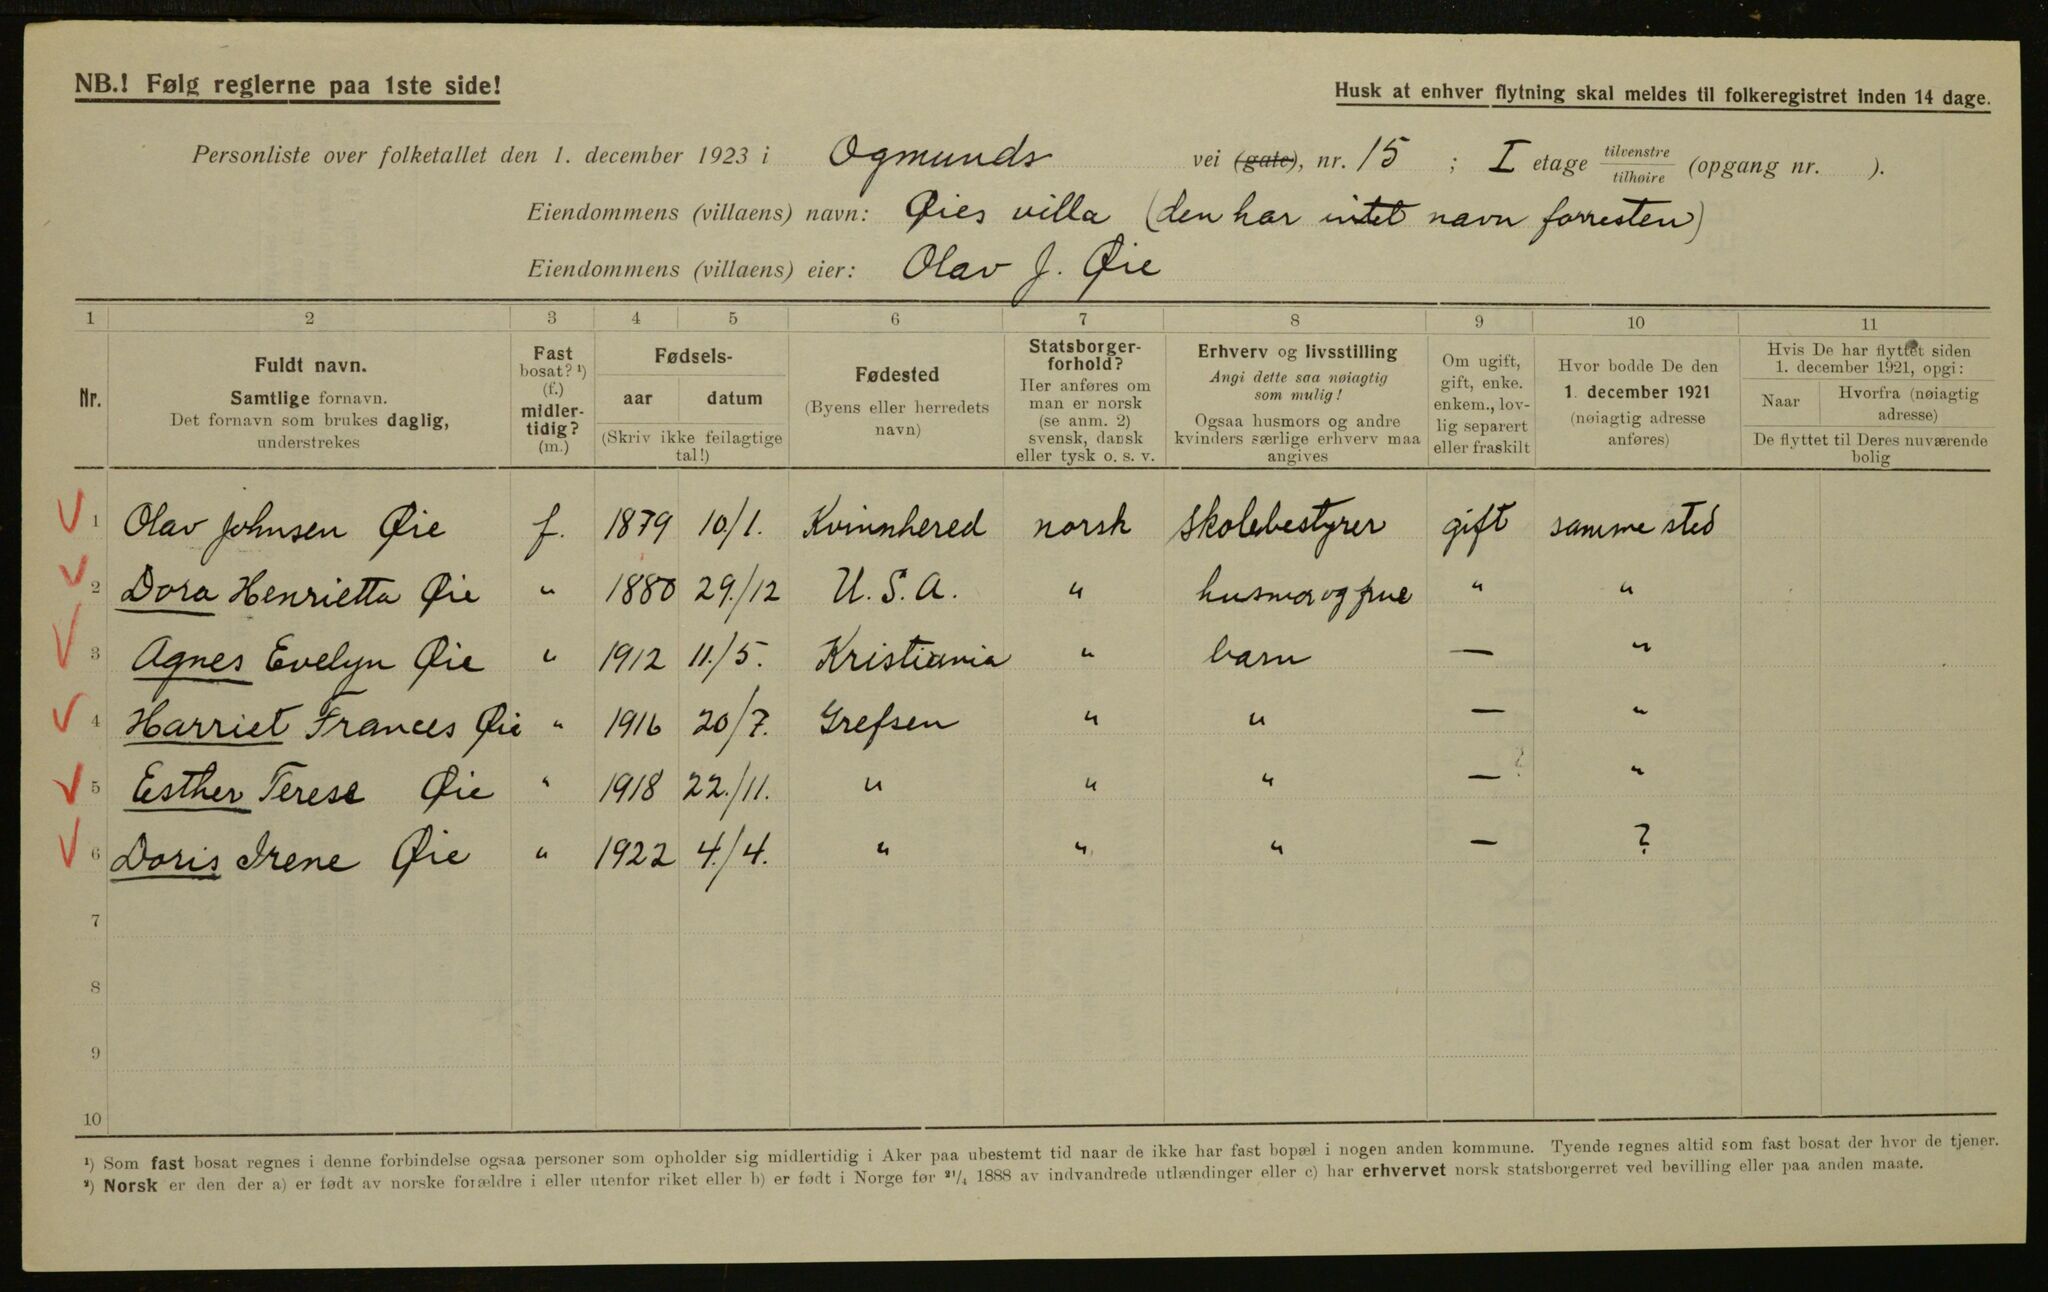 NB.! Følg reglerne paa 1ste side!
Husk at enhver flytning skal meldes til folkeregistret inden 14 dage.
Personliste over folketallet den 1. december 1923 i Ogmunds vei (gate), nr. 15 ; I etage tilvenstre / tilhøire (opgang nr. ).
Eiendommens (villaens) navn: Øies villa (den har intet navn forresten)
Eiendommens (villaens) eier: Olav J. Øie
1 2 3 4 5 6 7 8 9 10 11
Nr.
Fuldt navn.
Samtlige fornavn.
Det fornavn som brukes daglig,
understrekes
Fast
bosat? ¹)
(f.)
midler-
tidig?
(m.)
Fødsels-
aar datum
(Skriv ikke feilagtige
tal!)
Fødested
(Byens eller herredets
navn)
Statsborger-
forhold?
Her anføres om
man er norsk
(se anm. 2)
svensk, dansk
eller tysk o. s. v.
Erhverv og livsstilling
Angi dette saa nøiagtig
som mulig!
Ogsaa husmors og andre
kvinders særlige erhverv maa
angives
Om ugift,
gift, enke.
enkem., lov-
lig separert
eller fraskilt
Hvor bodde De den
1. december 1921
(nøiagtig adresse
anføres)
Hvis De har flyttet siden
1. december 1921, opgi:
Naar
Hvorfra (nøiagtig
adresse)
De flyttet til Deres nuværende
bolig
1 Olav Johnsen Øie f. 1879 10/1. Kvinnhered norsk skolebestyrer gift samme sted
2 Dora Henrietta Øie " 1880 29./12 U.S.A. " husmor og frue " "
3 Agnes Evelyn Øie " 1912 11./5. Kristiania " barn — "
4 Harriet Frances Øie " 1916 20/7. Grefsen " " — "
5 Esther Terese Øie " 1918 22./11. " " " — "
6 Doris Irene Øie " 1922 4./4. " " " — ?
7
8
9
10
¹) Som fast bosat regnes i denne forbindelse ogsaa personer som opholder sig midlertidig i Aker paa ubestemt tid naar de ikke har fast bopæl i nogen anden kommune. Tyende regnes altid som fast bosat der hvor de tjener.
²) Norsk er den der a) er født av norske forældre i eller utenfor riket eller b) er født i Norge før ²¹/₄ 1888 av indvandrede utlændinger eller c) har erhvervet norsk statsborgerret ved bevilling eller paa anden maate.